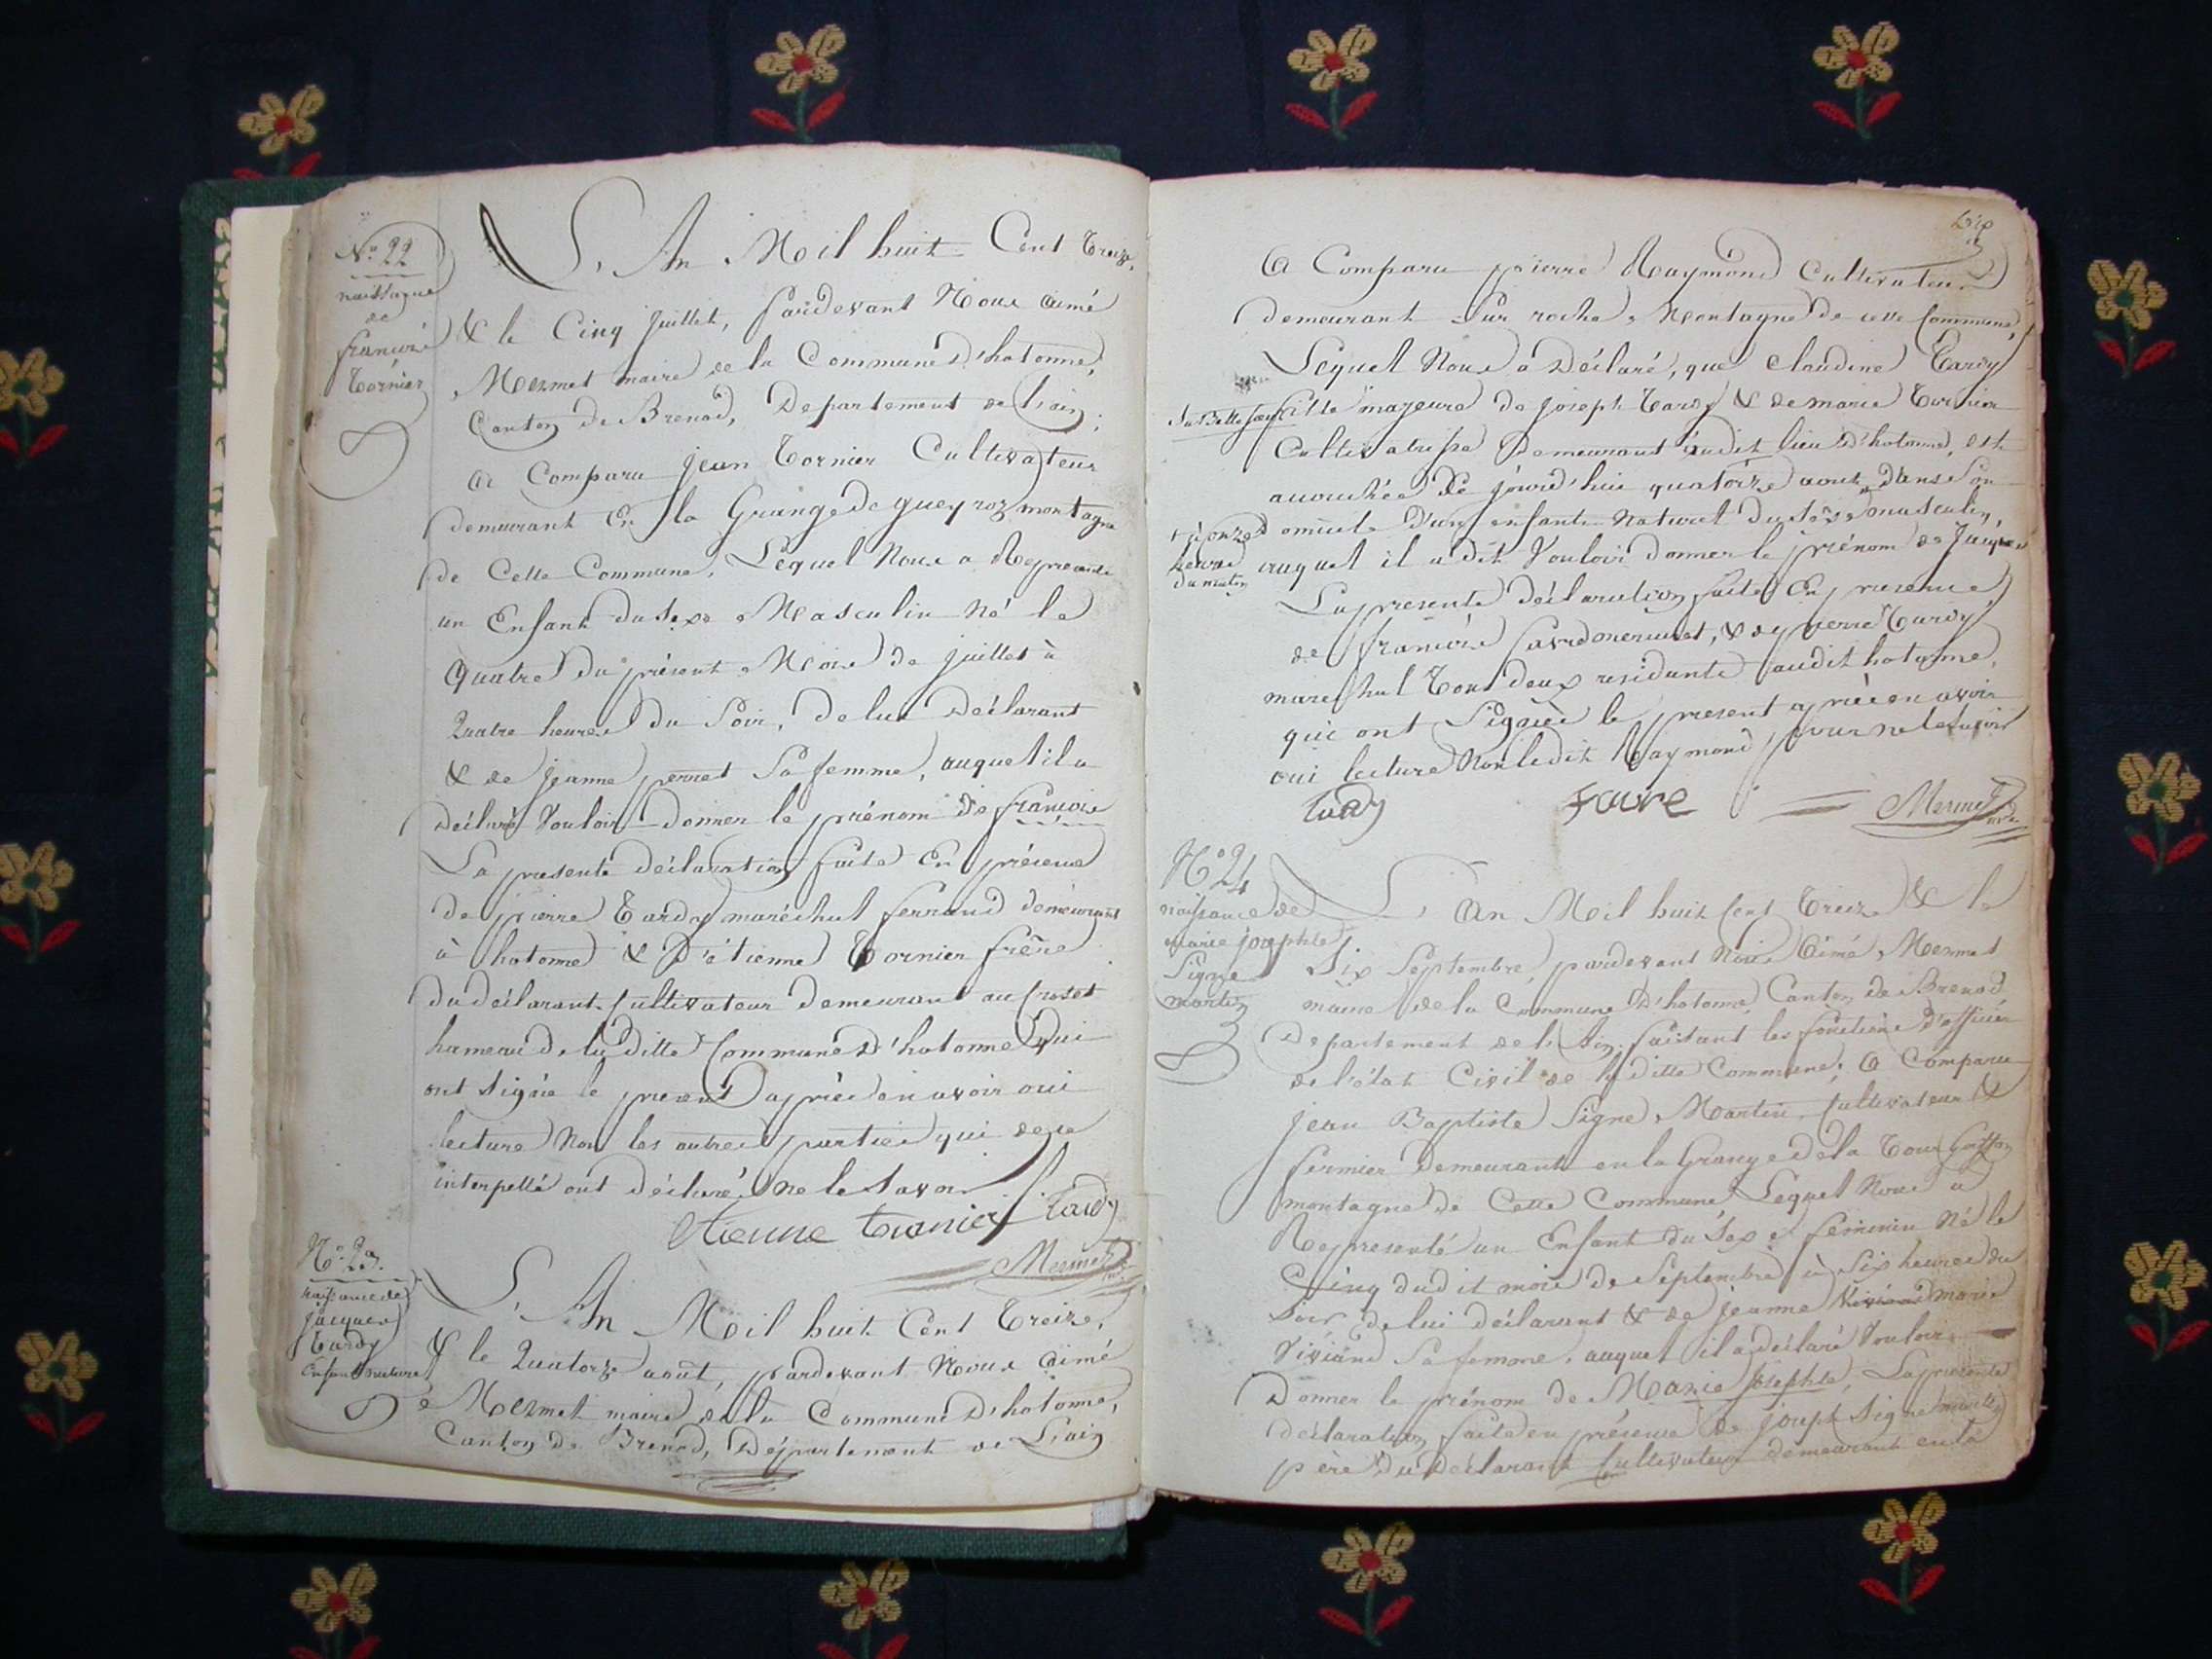 N.° 22
naissance
de
françois
Tornier
L'An Mil huit Cent Treize,
& le Cinq Juillet, pardevant Nous aimé
Mermet maire de la Commune d'hotonne,
Canton de Brenod, Departement de L'ain,
a Comparu Jean Tornier Cultivateur
demeurant En la Grange de gueyroz montagne
de Cette Commune, Lequel Nous a Representé
un Enfant du Sexe Masculin Né le
quatre du présent Mois de juillet à
Quatre heures du Soir, De lui Déclarant
& de jeanne perret Sa femme, auquel il a
déclaré Vouloir donner le prénom de françois
La presente déclaration faite En présence
de pierre Tardy maréchal ferrand demeurant
à hotonne & D'étienne Tornier frère
du déclarant Cultivateur demeurant au Crozet
hameau de la ditte Commune d'hotonne Qui
ont signés le present après en avoir oui
lecture Non les autres parties qui de ce
interpellé ont déclaré Ne le Savoir
Etienne Tranier Tardy
Mermet
N.° 23.
naissance de
jacques
Tardy
Enfant naturel
L'An Mil huit Cent Treize,
& le Quatorze août, pardevant Nous aimé
Mermet maire de la Commune D'hotonne,
Canton de Brenod, Département de L'ain
Dix
A Comparu pierre Raymond Cultivateur
demeurant Sur roche, Montagne de cette Commune
Lequel Nous a Déclaré, que Claudine Tardy
Sa Belle Sœur fille majeure de joseph Tardy & de marie Tornier
Cultivatrisse Demeurant audit lieu d'hotonne, est
accouchée De jourd'hui quatorze aout dans Son
+ à onze heures du matin
domicile D'un enfant Naturel du Sexe masculin,
auquel il a dit Vouloir donner le prénom de Jacques
La presente déclaration faite En presence
de françois favre, & de pierre Tardy
marechal Tous deux residents audit hotonne,
qui ont Signés le present après en avoir
oui lecture Non ledit Raymond, pour ne le Savoir
Tardy Favre Mermet
N.° 24
naissance de
marie josephte
Signe
martin
L'An Mil huit Cent Treize & le
Six Septembre, pardevant Nous Aimé Mermet
maire de la Commune D'hotonne, Canton de Brenod
Departement de L'Ain faisant les fonctions d'officier
de l'état Civil de la ditte Commune; A Comparu
jean Baptiste Signe Martin, Cultivateur &
fermier Demeurant en la Grange de la Tour
montagne de Cette Commune, Lequel Nous a
Representé un Enfant du Sexe féminin Né le
Cinq dudit mois de Septembre à Six heures du
Soir de lui déclarant & de jeanne marie
Viviand Sa femme, auquel il a déclaré Vouloir
Donner le prénom de Marie josephte, La presente
déclaration faite en présence de joseph Signe martin
père du Déclarant Cultivateur demeurant en la